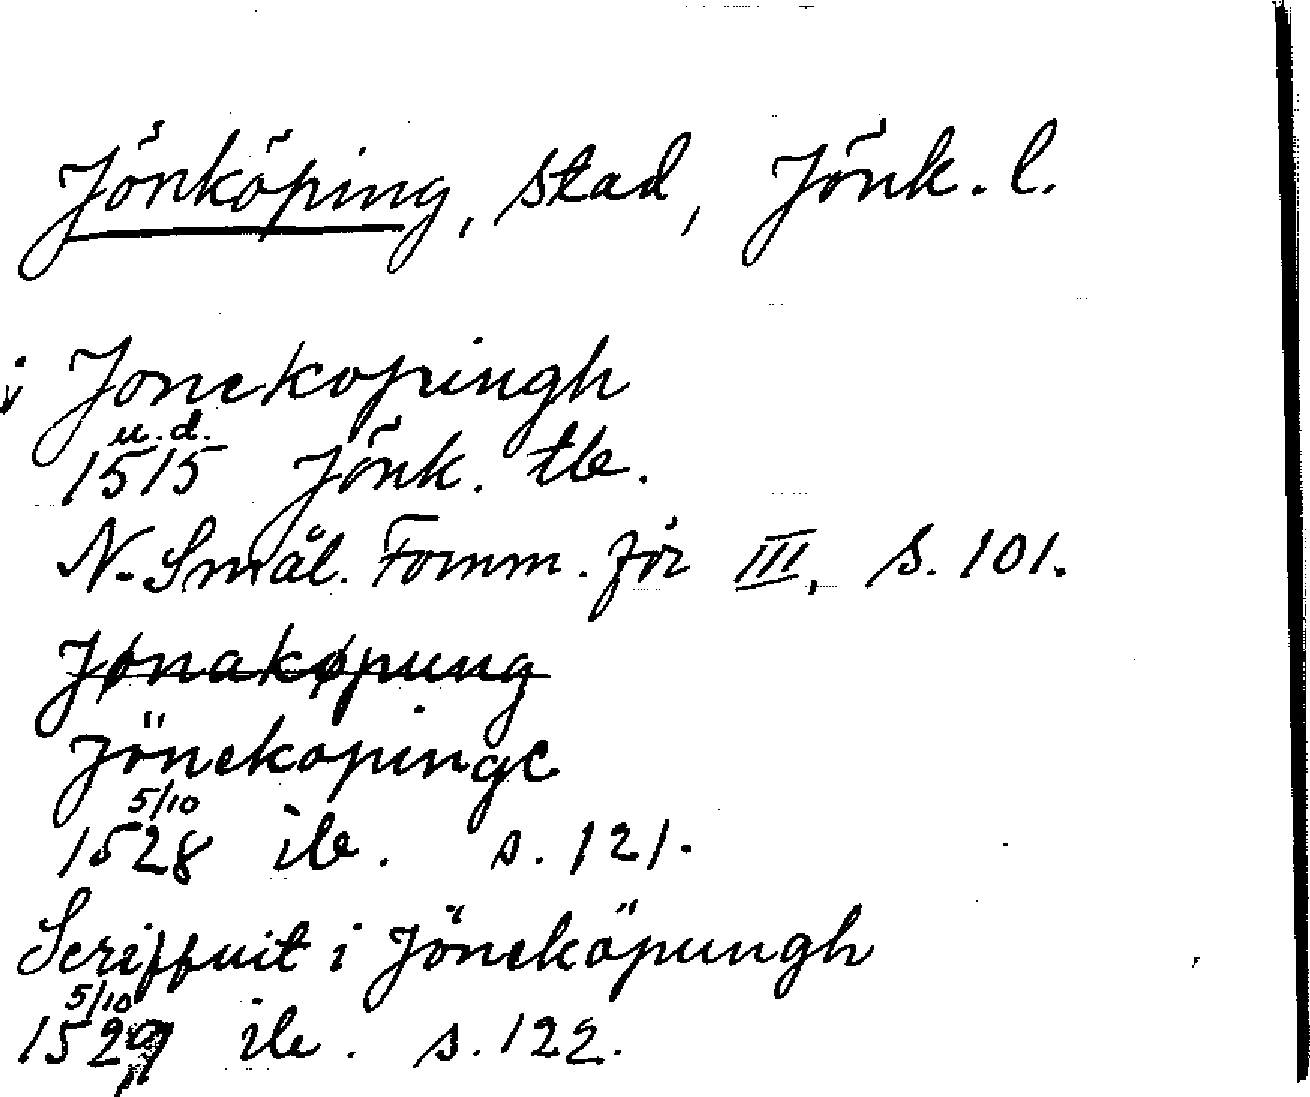 Jönköping, stad, Jönk. l.
i Jonekopingh
u.d.
1515 Jönk. tb.
N. Smål. Fornm.för III, S. 101.
Jønakøpung
Jönekopinge
5/10
1528 ib. s. 121.
Scriffuit i Jöneköpungh
5/10
1529 ib. s. 122.